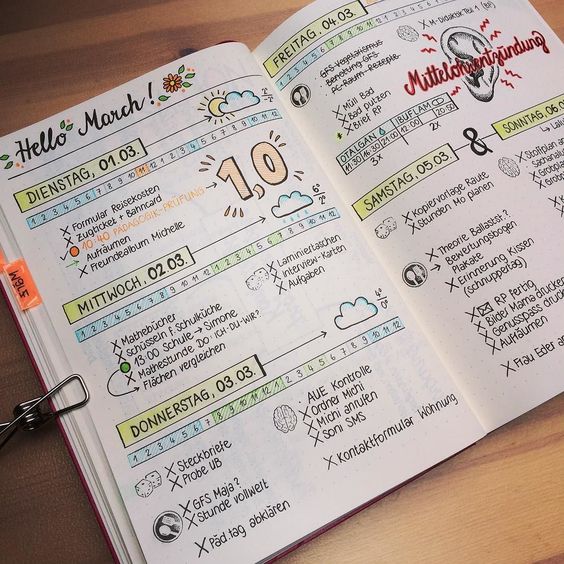 Hello March!
DIENSTAG, 01.03.
2°
-2°
1 2 3 4 5 6 7 8 9 10 11 12 1 2 3 4 5 6 7 8 9 10 11 12
X Formular Reisekosten
X Zugticket + Bahncard
10:40 PÄDAGOGIK-PRÜFUNG
Aufräumen
X Freundealbum Michelle
1,0
6°
2°
MITTWOCH, 02.03.
1 2 3 4 5 6 7 8 9 10 11 12 1 2 3 4 5 6 7 8 9 10 11 12
X Mathebücher
X Schüsseln f. Schulküche
13:00 Schule → Simone
X Mathestunde DO: ICH-DU-WIR?
Flächen vergleichen
X Laminiertaschen
X Interview-Karten
X Aufgaben
4°
0°
DONNERSTAG, 03.03.
1 2 3 4 5 6 7 8 9 10 11 12 1 2 3 4 5 6 7 8 9 10 11 12
X Steckbriefe
X Probe UB
X GFS Maja?
X Stunde vollwert
X Päd.tag abklären
AUF Kontrolle
X Ordner Michi
X Michi anrufen
X Soni SMS
X Kontaktformular Wohnung
FREITAG, 04.03.
X GFS-Vegetarismus
Benotung GFS
PC-Raum-Rezepte
X Müll Bad
X Bad putzen
X Brief RP
X M-Didaktik Teil 1
Mittelohrentzündung
OTALGAN
BUFLAM
11:30 16:30 21:00
12:00 20:50
3x
2x
SAMSTAG, 05.03.
&
SONNTAG, 06.0
X Kopiervorlage Raute
X Stunden Mo planen
X Theorie Ballastst.?
X Bewertungsbogen
Plakate
X Erinnerung Kissen
(Schnuppertag)
X RP fertig
X Bilder Mama drucke
X Genusspass druck
X Aufräumen
X Frau Eder